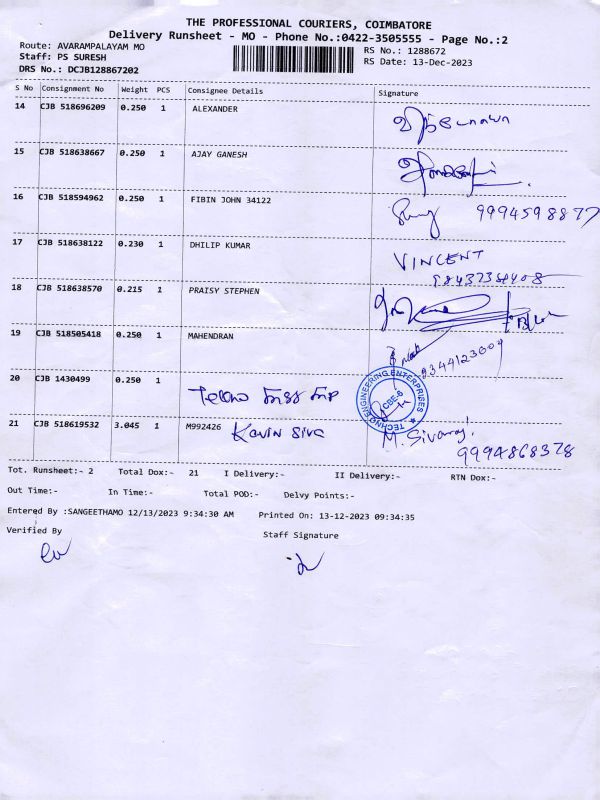 THE PROFESSIONAL COURIERS, COIMBATORE
Delivery Runsheet - MO - Phone No.:0422-3505555 - Page No.:2
Route: AVARAMPALAYAM MO RS No.: 1288672
Staff: PS SURESH RS Date: 13-Dec-2023
DRS No.: DCJB128867202
S No Consignment No Weight PCS Consignee Details Signature
14 CJB 518696209 0.250 1 ALEXANDER
15 CJB 518638667 0.250 1 AJAY GANESH
16 CJB 518594962 0.250 1 FIBIN JOHN 34122 9994598877
17 CJB 518638122 0.230 1 DHILIP KUMAR VINCENT
18 CJB 518638570 0.215 1 PRAISY STEPHEN
19 CJB 518505418 0.250 1 MAHENDRAN
20 CJB 1430499 0.250 1
TECHNO ENGINEERING ENTERPRISES
CBE-6
21 CJB 518619532 3.045 1 M992426 Kavin Siva M. Sivaraj
9994868378
Tot. Runsheet:- 2 Total Dox:- 21 I Delivery:- II Delivery:- RTN Dox:-
Out Time:- In Time:- Total POD:- Delvy Points:-
Entered By :SANGEETHAMO 12/13/2023 9:34:30 AM Printed On: 13-12-2023 09:34:35
Verified By Staff Signature